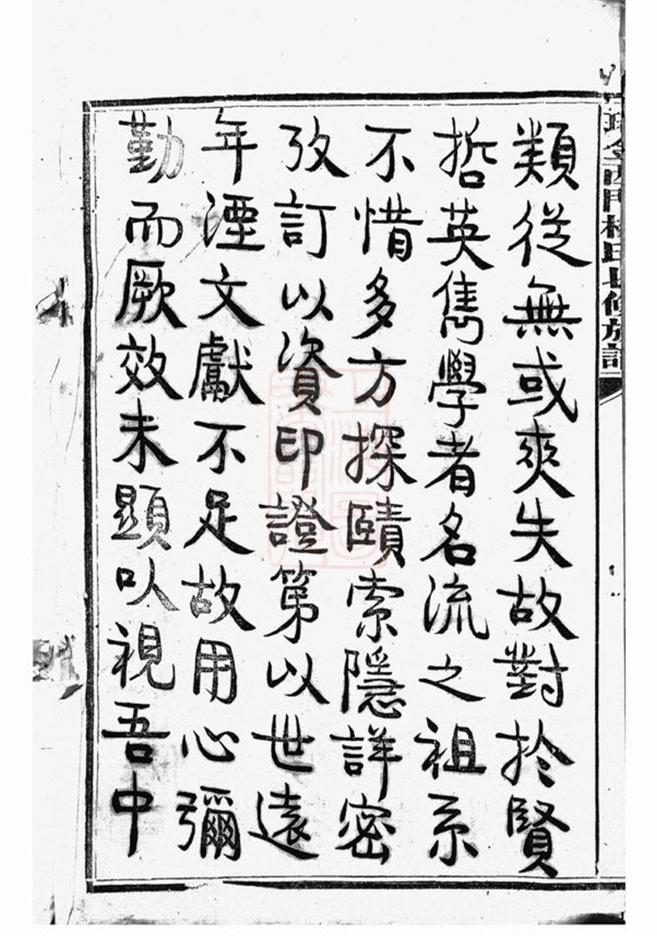 類從無或爽失故對於賢
哲英雋學者名流之祖系
不惜多方探賾索隱詳密
攷訂以資印證第以世遠
年湮文獻不足故用心彌
勤而厥效未顯以視吾中